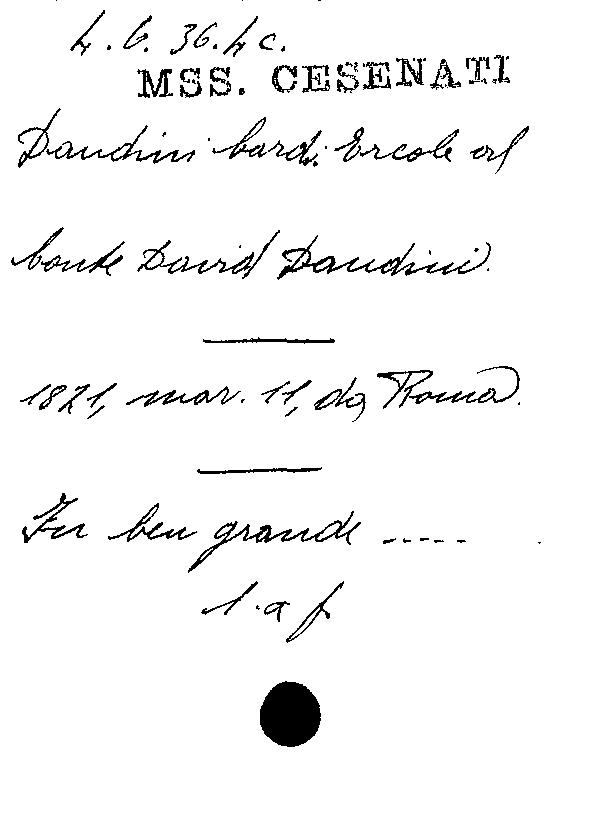 L. b. 36. 4c.
MSS. CESENATI
Dandini Card. Ercole al
Conte David Dandini.
1821, mar. 11, da Roma.
Fu ben grande .....
l. a f.